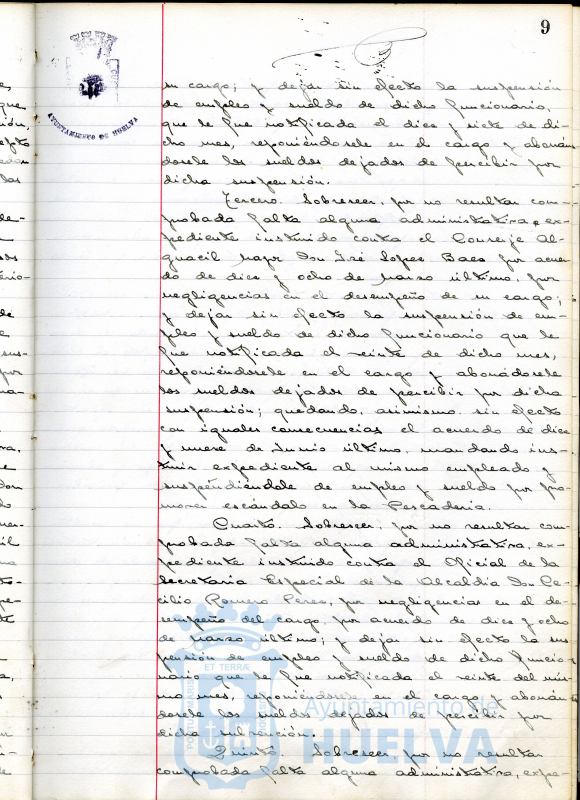 9
AYUNTAMIENTO DE HUELVA
su cargo; y dejar sin efecto la suspensión
de empleo y sueldo de dicho funcionario,
que le fue notificada el diez y siete de di-
cho mes, reponiéndosele en el cargo y abonán-
dosele los sueldos dejados de percibir por
dicha suspensión.
Tercero. Sobreseer, por no resultar com-
probada falta alguna administrativa, ex-
pediente instruido contra el Conserje Al-
guacil mayor Don José López Baco por acuer-
do de diez y ocho de marzo último, por
negligencias en el desempeño de su cargo;
y dejar sin efecto la suspensión de em-
pleo y sueldo de dicho funcionario que le
fue notificada el veinte de dicho mes,
reponiéndosele en el cargo y abonándosele
los sueldos dejados de percibir por dicha
suspensión; quedando, asimismo, sin efecto
con iguales consecuencias el acuerdo de diez
y nueve de Junio último, mandando ins-
truir expediente al mismo empleado y
suspendiéndole de empleo y sueldo por pro-
mover escándalo en la Pescadería.
Cuarto. Sobreseer, por no resultar com-
probada falta alguna administrativa, ex-
pediente instruido contra el Oficial de la
Secretaría Especial de la Alcaldía Don Ce-
cilio Romero Pérez, por negligencias en el de-
sempeño del cargo, por acuerdo de diez y ocho
de marzo último; y dejar sin efecto la sus-
pensión de empleo y sueldo de dicho funcio-
nario que le fue notificada el veinte del mis-
mo mes, reponiéndosele en el cargo y abonán-
dosele los sueldos dejados de percibir por
dicha
Quinto. Sobreseer, por no resultar
comprobada falta alguna administrativa, expe-
Ayuntamiento de
HUELVA